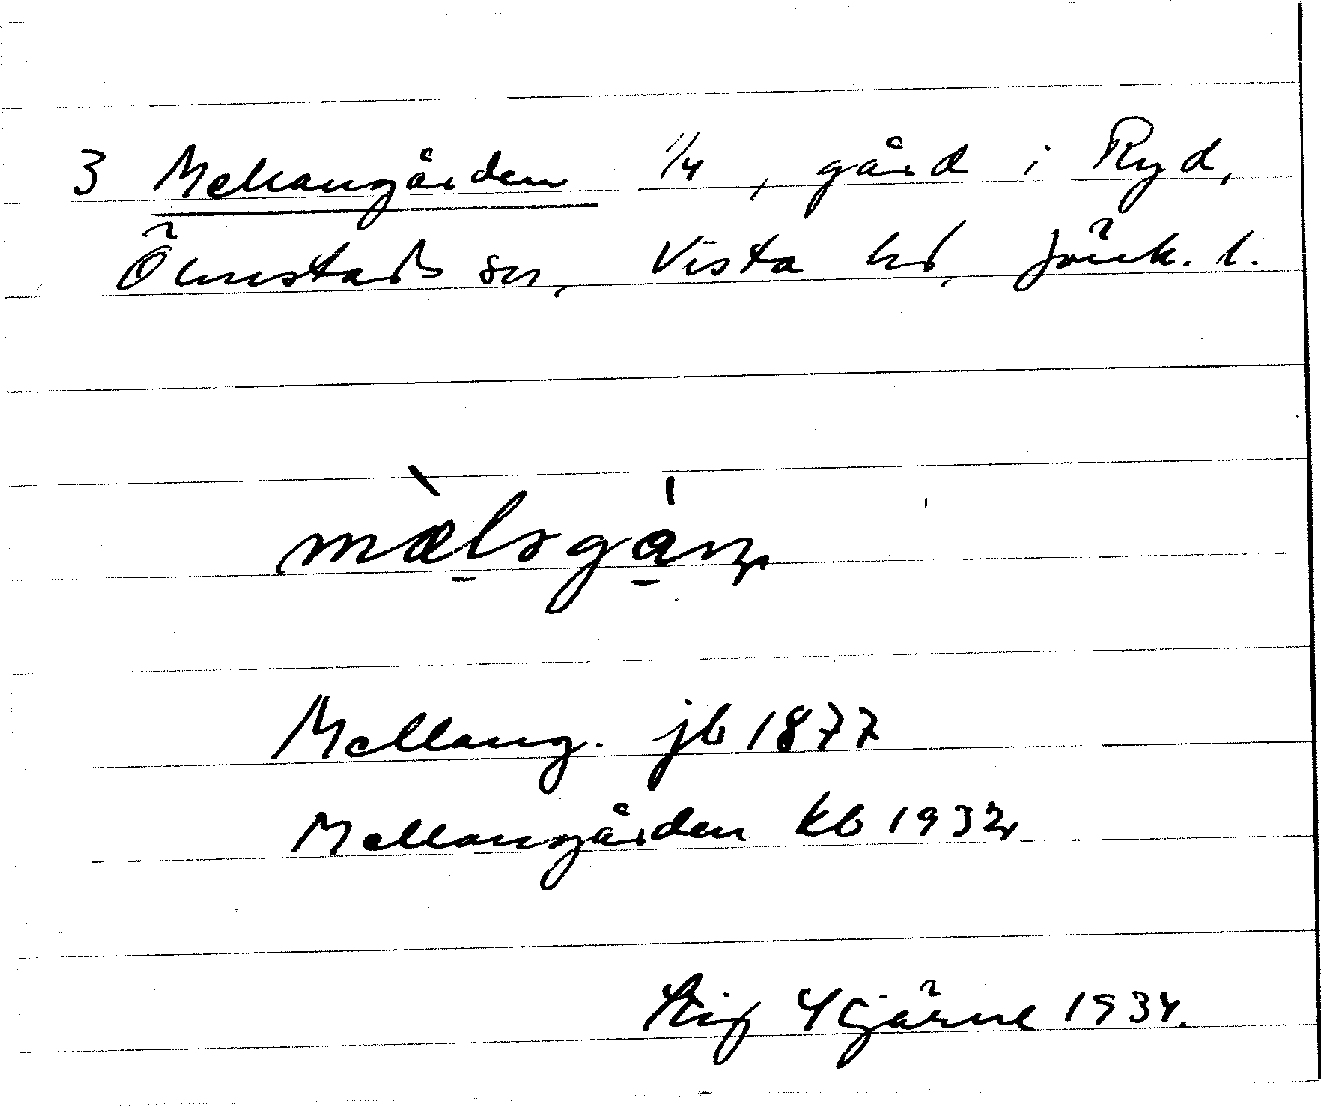 3 Mellangården 1/4, gård i Ryd,
Ölmstads sn, Vista hd, Jönk. l.
Mellang. jb 1877
Mellangården kb 1932
Stig Hjärne 1934.